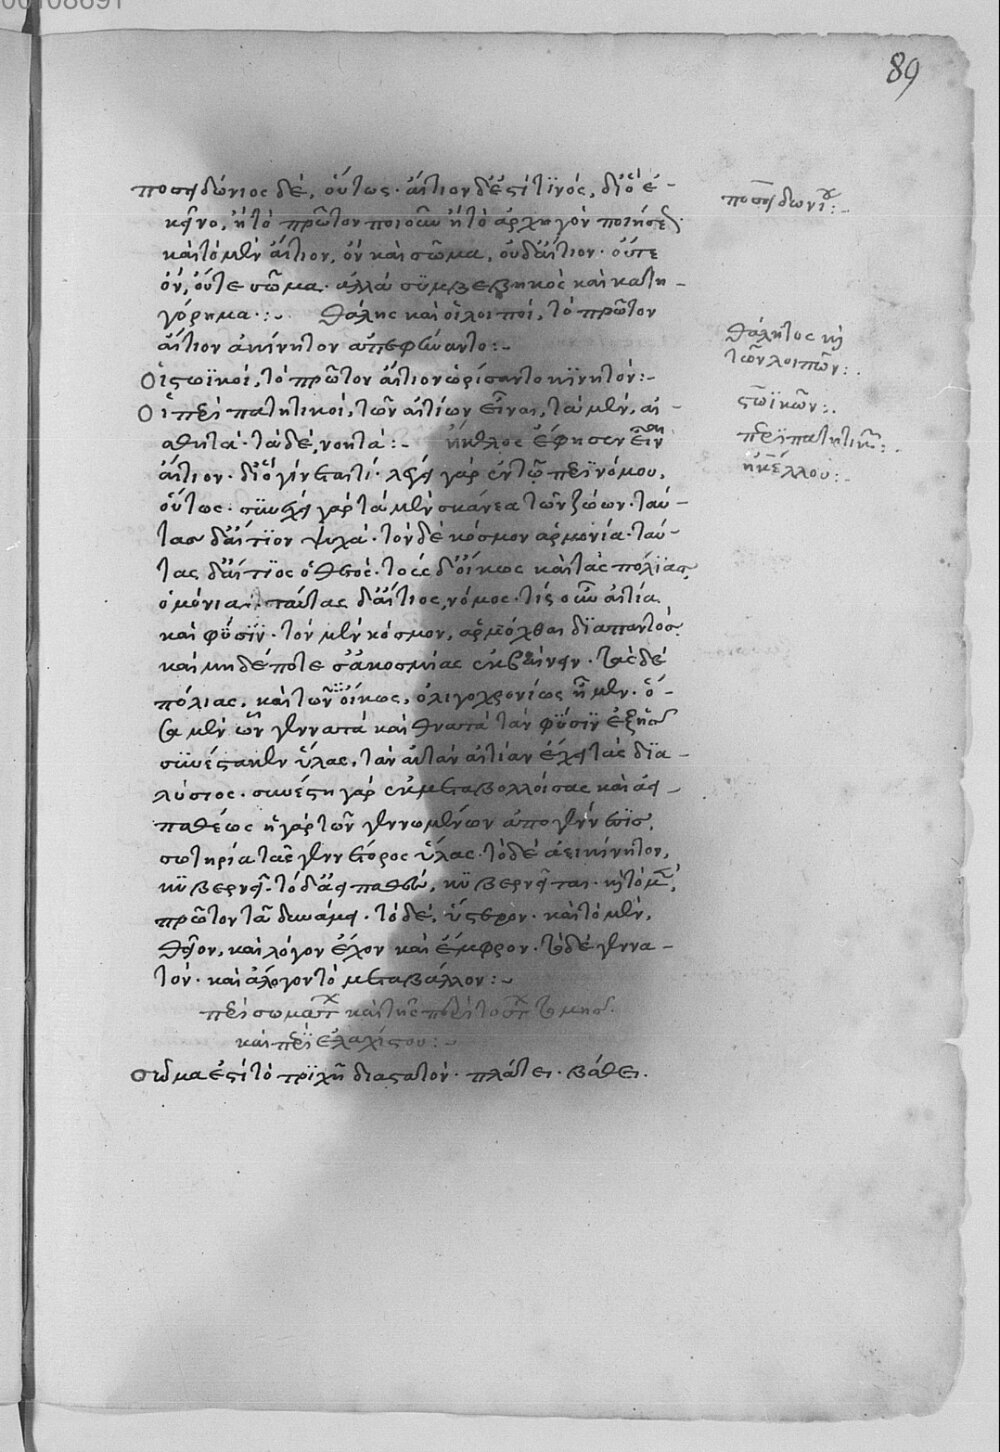 89
ποσειδώνιος δέ, οὕτως· αἴτιον δ' ἐστί τινός, δι' ὃ ἐ-
κεῖνο, ἢ τὸ πρῶτον ποιοῦν ἢ τὸ ἀρχηγὸν ποιήσεως·
καὶ τὸ μὲν αἴτιον, ὂν καὶ σῶμα, οὐδ' αἴτιον· οὔτε
ὄν, οὔτε σῶμα· ἀλλὰ συμβεβηκὸς καὶ κατη-
γόρημα :~ θάλης καὶ οἱ λοιποί, τὸ πρῶτον
αἴτιον ἀκίνητον ἀπεφήναντο :~
Οἱ στωϊκοί, τὸ πρῶτον αἴτιον ὡρίσαντο κινητόν :~
Οἱ περιπατητικοί, τῶν αἰτίων εἶναι, τὰ μὲν, αἰ-
σθητά· τὰ δέ, νοητά :~ ἔφησεν εἶναι
αἴτιον· δι' ὃ γίνεταί τι· λέγει γὰρ ἐν τῷ περὶ νόμου,
οὕτως· συνέχει γὰρ τὰ μὲν σκάνεα τῶν ζώων· ταύ-
τας δ' αἴτιον ψυχά· τὸν δὲ κόσμον ἁρμονία· ταύ-
τας δ' αἴτιος ὁ θεός· τοὺς δ' οἴκως καὶ τὰς πόλιας
ὁμόνοια· ταύτας δ' αἴτιος, νόμος· τίς οὖν αἰτία
καὶ φύσιν· τὸν μὲν κόσμον, ἁρμόχθαι διαπαντός·
καὶ μηδέποτε ἀκοσμίας ἐκβαίνειν· τὰς δὲ
πόλιας, καὶ τῶν οἴκως, ὀλιγοχρονίως ἦμεν· ὅ-
σα μὲν ὦν γεννατὰ καὶ θνατὰ τὰν φύσιν ἐξ ἧς
συνέστακεν ὕλας, τὰν αὐτὰν αἰτίαν ἔχει τᾶς δια-
λύσιος· συνέστη γὰρ ἐκ μεταβαλλοίσας καὶ ἀει-
παθέως ἡ γὰρ τῶν γεννωμένων ἀπογέννεσις,
σωτηρία τᾶς γεννέτορος ὕλας· τὸ δὲ ἀεικίνητον,
κυβερνεῖ· τὸ δ' ἀειπαθὲς, κυβερνεῖται· κὴ τὸ μὲν
πρῶτον τᾷ δυνάμει· τὸ δέ, ὕστερον· καὶ τὸ μὲν,
θεῖον, καὶ λόγον ἔχον καὶ ἔμφρον· τὸ δὲ γεννα-
τόν· καὶ ἄλογον τὸ μεταβάλλον :~
περὶ σωμάτων καὶ τῆς περὶ τούτων τομῆς·
καὶ περὶ ἐλαχίστου :~
Σῶμα ἐστὶ τὸ τριχῇ διαστατόν· πλάτει· βάθει·
ποσειδωνίου :~
θάλητος κὴ
τῶν λοιπῶν :~
στωϊκῶν :~
περιπατητικῶν :~
ἠκέλλου :~